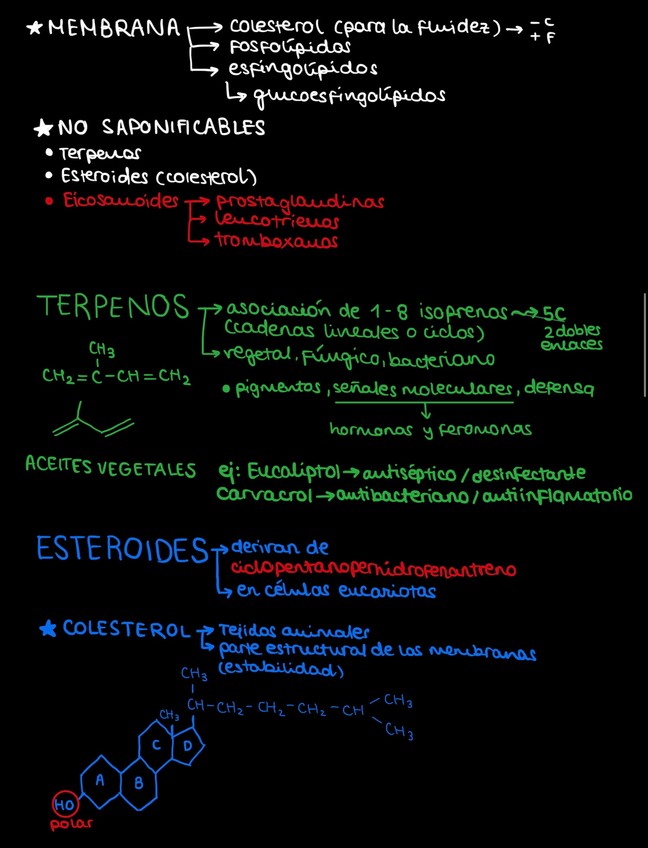 ★ MEMBRANA → colesterol (para la fluidez) → - C
+ F
→ fosfolípidos
→ esfingolípidos
↳ glucoesfingolípidos
★ NO SAPONIFICABLES
• Terpenos
• Esteroides (colesterol)
• Eicosanoides → prostaglandinas
→ leucotrienos
→ tromboxanos
TERPENOS → asociación de 1-8 isoprenos → 5C
(cadenas lineales o ciclos) 2 dobles
enlaces
→ vegetal, fúngico, bacteriano
CH3
CH2=C-CH=CH2
• pigmentos, señales moleculares, defensa
↓
hormonas y feromonas
ACEITES VEGETALES ej: Eucaliptol → antiséptico / desinfectante
Carvacrol → antibacteriano / antiinflamatorio
ESTEROIDES → derivan de
ciclopentanoperhidrofenantreno
→ en células eucariotas
★ COLESTEROL → Tejidos animales
→ parte estructural de las membranas
(estabilidad)
CH3
CH-CH2-CH2-CH2-CH
CH3
CH3
CH3
C D
A B
HO
polar